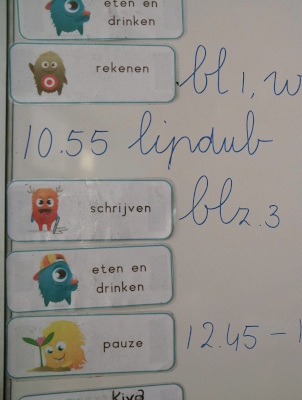 eten en
drinken
rekenen
bl 1, w
10.55 lipdub
schrijven
blz. 3
eten en
drinken
pauze
12.45 -
Kiva